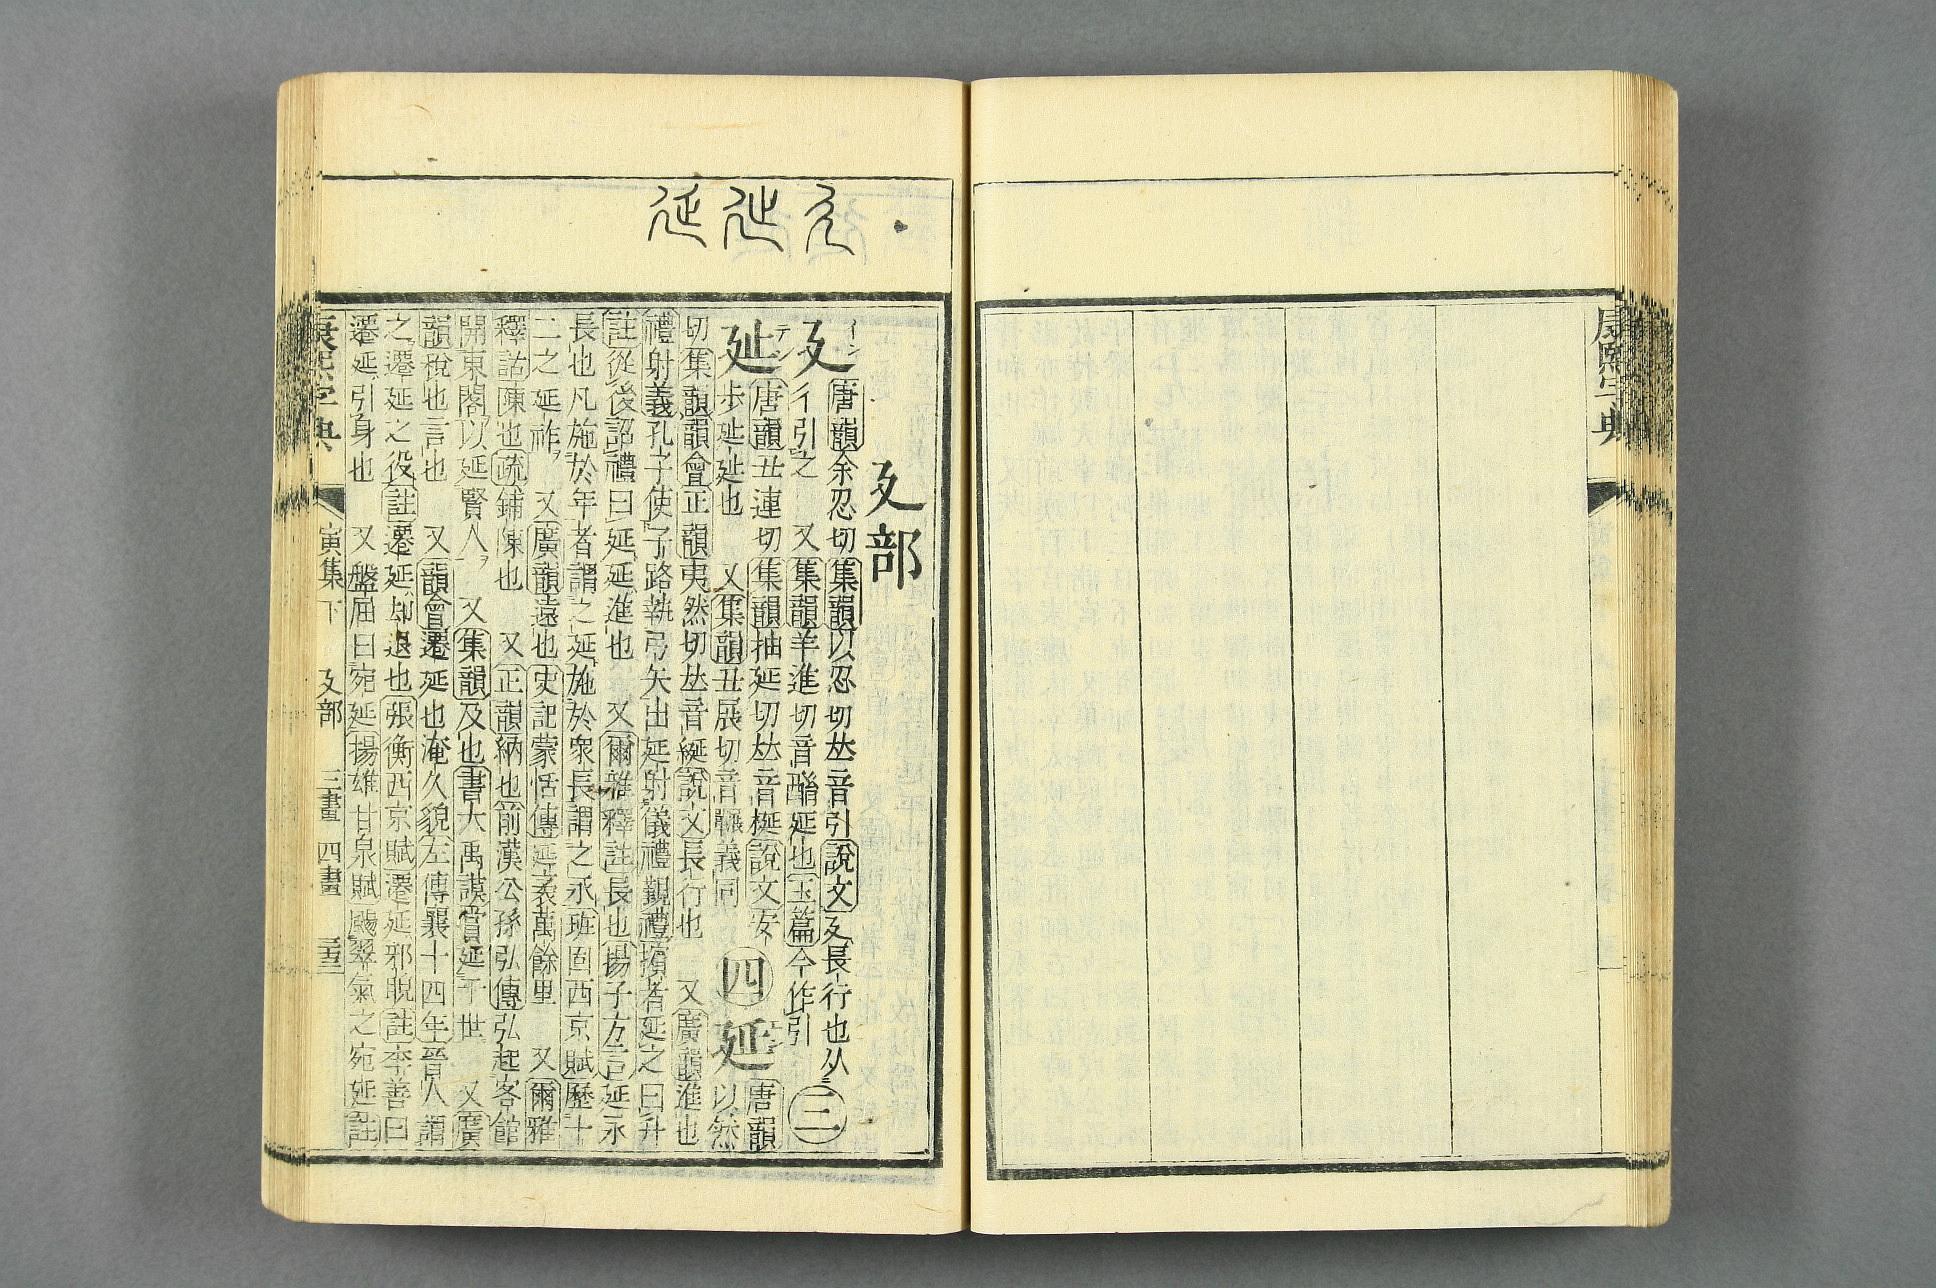 康熙字典
廴㢟延
廴部
廴イン唐韻余忍切集韻以忍切𠀤音引說文廴長行也从
彳引之 又集韻羊進切音酳延也玉篇今作引 三
㢟テン唐韻丑連切集韻抽延切𠀤音梴說文安
步㢟㢟也 又集韻丑展切音義同
四 延 唐韻以然
切集韻韻會正韻夷然切𠀤音綖說文長行也 又廣韻進也
禮射義孔子使子路執弓矢出延射儀禮覲禮擯者延之曰升
註從後詔禮曰延延進也 又爾雅釋詁長也揚子方言延永
長也凡施於年者謂之延施於衆長謂之永班固西京賦歷十
二之延祚 又廣韻遠也史記蒙恬傳延袤萬餘里 又爾雅
釋詁陳也疏鋪陳也 又正韻納也前漢公孫弘傳弘起客館
開東閤以延賢人 又集韻及也書大禹謨賞延于世 又廣
韻稅也言也 又韻會遷延也淹久貌左傳襄十四年晉人謂
之遷延之役註遷延却退也張衡西京賦遷延邪睨註李善曰
遷延引身也 又盤屈曰宛延揚雄甘泉賦颺翠氣之宛延註
康熙字典 寅集下 廴部 三畫 四畫